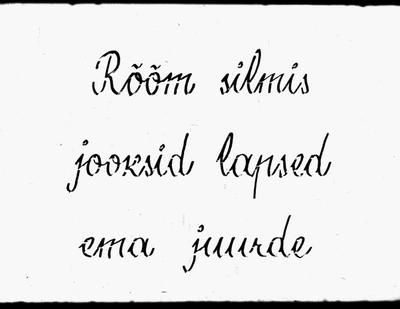 Rõõm silmis
jooksid lapsed
ema juurde